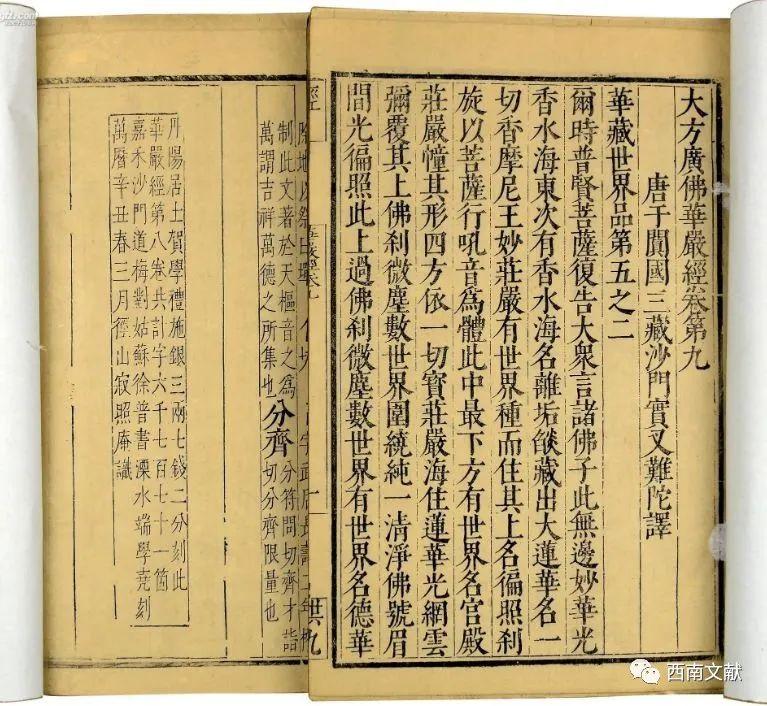 大方廣佛華嚴經卷第九
唐于闐國三藏沙門實叉難陀譯
華藏世界品第五之二
爾時普賢菩薩復告大衆言諸佛子此無邊妙華光
香水海東次有香水海名離垢燄藏出大蓮華名一
切香摩尼王妙莊嚴有世界種而住其上名徧照刹
旋以菩薩行吼音爲體此中最下方有世界名宫殿
莊嚴幢其形四方依一切寶莊嚴海住蓮華光網雲
彌覆其上佛刹微塵數世界圍繞純一清淨佛號眉
間光徧照此上過佛刹微塵數世界有世界名德華
經
卷九
制此文著於天樞音之爲
萬謂吉祥萬德之所集也
分齊
分符問切齊才詣
切分齊限量也
丹陽居士賀學禮施銀三兩七錢二分刻此
華嚴經第八卷共計字六千七百七十一箇
嘉禾沙門道梅對姑蘇徐普書溧水端學堯刻
萬曆辛丑春三月徑山寂照庵識
西南文献